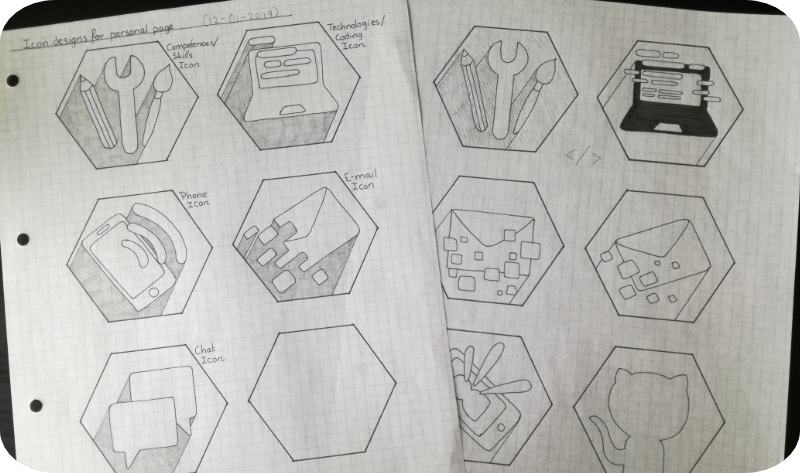 Icon designs for personal page
(12-01-2019)
Competences/
Skills
Icon
Technologies/
Coding
Icon
Phone
Icon
E-mail
Icon
Chat
Icon
</>